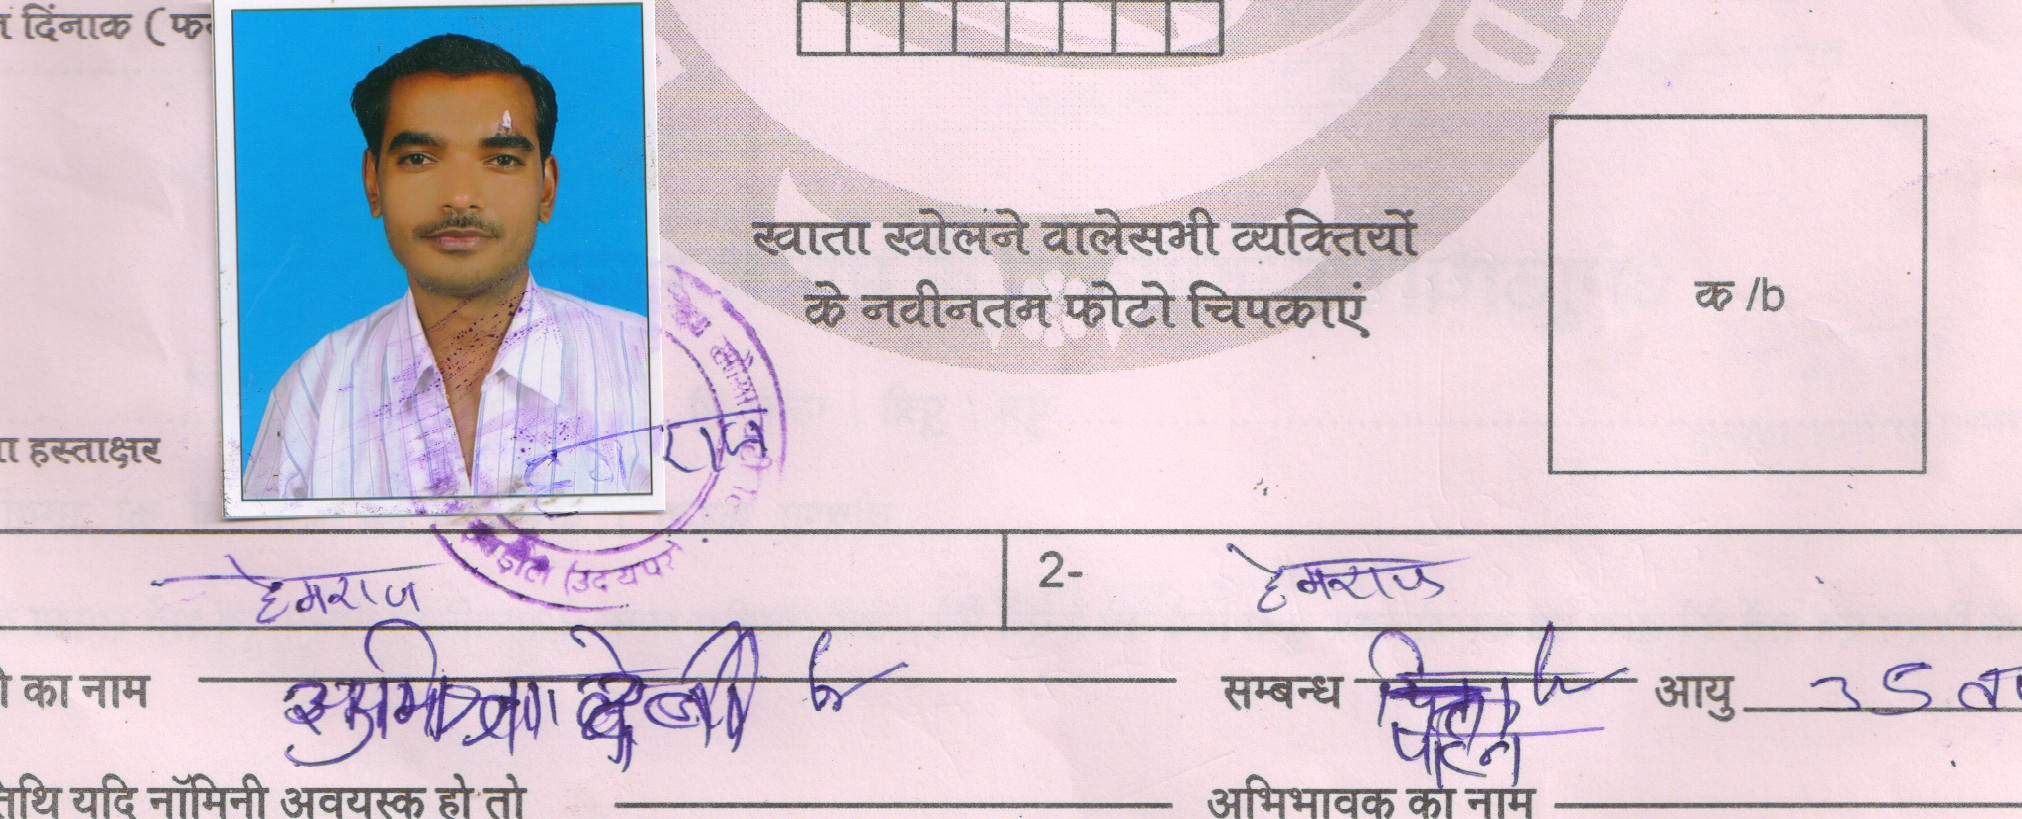 दिंनाक (फ
खाता खोलंने वालेसभी व्यक्तियों
के नवीनतम फोटो चिपकाएं
क /b
हस्ताक्षर
राज
उदयपुर
हेमराज
2- हेमराज
का नाम सुमित्रा देवी
सम्बन्ध पत्नि आयु 35
तिथि यदि नॉमिनी अवयस्क हो तो
अभिभावक का नाम